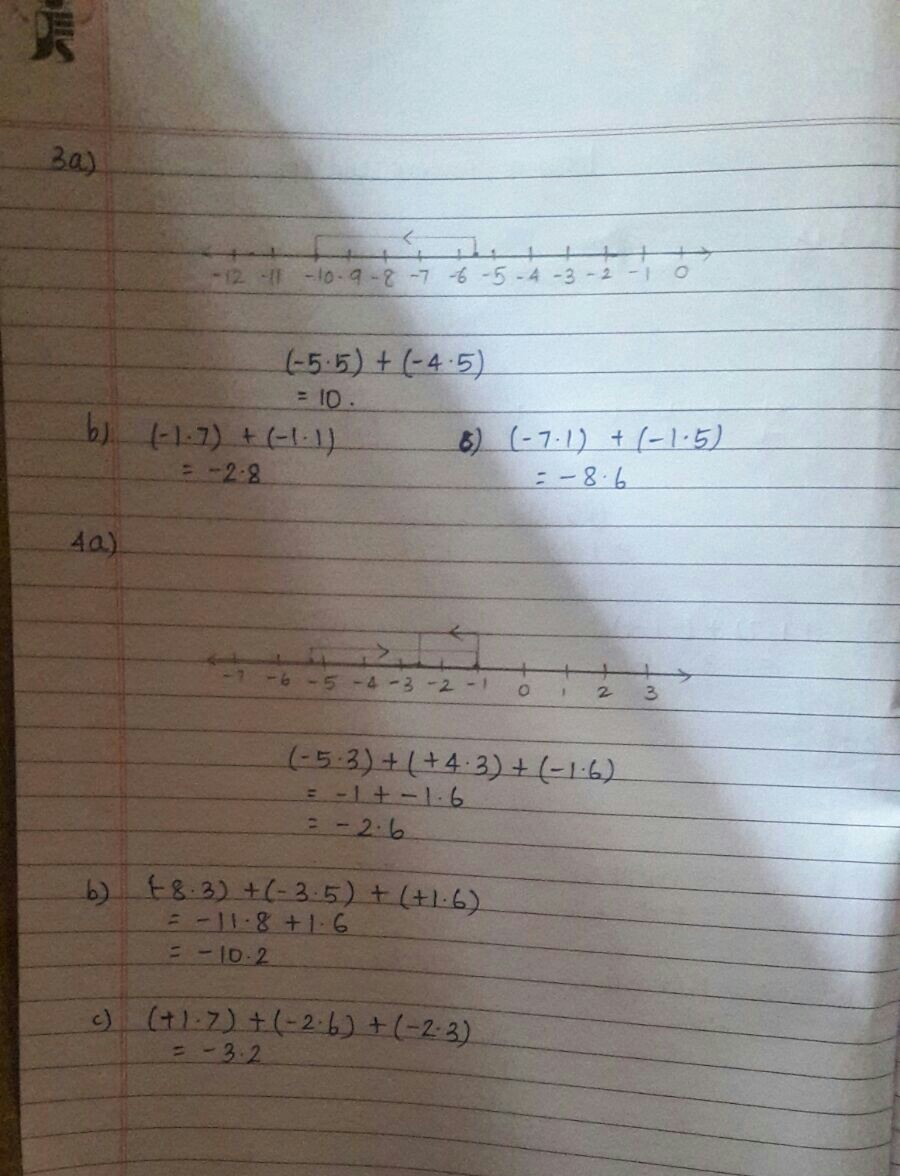 3a)
-12 -11 -10 -9 -8 -7 -6 -5 -4 -3 -2 -1 0
(-5.5) + (-4.5)
= 10.
b) (-1.7) + (-1.1)
= -2.8
(-7.1) + (-1.5)
= -8.6
4a)
-7 -6 -5 -4 -3 -2 -1 0 1 2 3
(-5.3) + (+4.3) + (-1.6)
= -1 + -1.6
= -2.6
b) (-8.3) + (-3.5) + (+1.6)
= -11.8 + 1.6
= -10.2
c) (+1.7) + (-2.6) + (-2.3)
= -3.2